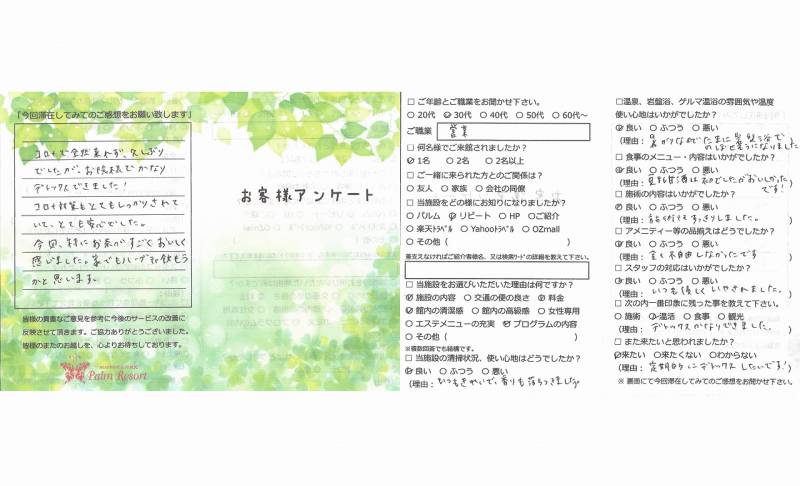 「今回滞在してみてのご感想をお願い致します」
コロナで全然来れず、久しぶり
でしたが、お陰様でかなり
デトックスできました!
コロナ対策もとてもしっかりされて
いて、とても安心でした。
今回、特にお茶がすごくおいしく
感じました。家でもハーブティ飲もう
かと思います。
皆様の貴重なご意見を参考に今後のサービスの改善に
反映させて頂きます。ご協力ありがとうございました。
皆様のまたのお越しを、心よりお待ちしております。
Palm Resort
お客様アンケート
□ ご年齢とご職業をお聞かせ下さい。
○ 20代 ☑ 30代 ○ 40代 ○ 50代 ○ 60代～
ご職業 営業
□ 何名様でご来館されましたか?
☑ 1名 ○ 2名 ○ 2名以上
□ ご一緒に来られた方とのご関係は?
○ 友人 ○ 家族 ○ 会社の同僚
□ 当施設をどの様にお知りになりましたか?
○ パルム ☑ リピート ○ HP ○ ご紹介
○ 楽天トラベル ○ Yahooトラベル ○ OZmall
○ その他 ( )
差支えなければご紹介者様名、又は検索ワードの詳細を教えて下さい。
□ 当施設をお選びいただいた理由は何ですか?
☑ 施設の内容 ○ 交通の便の良さ ☑ 料金
☑ 館内の清潔感 ○ 館内の高級感 ○ 女性専用
○ エステメニューの充実 ☑ プログラムの内容
○ その他 ( )
※複数回答でも結構です。
□ 当施設の清掃状況、使い心地はどうでしたか?
☑ 良い ○ ふつう ○ 悪い
(理由: いつもきれいで、香りも落ちつきました。
□温泉、岩盤浴、ゲルマ温浴の雰囲気や温度
使い心地はいかがでしたか?
☑ 良い ○ ふつう ○ 悪い
(理由:
のぼせそうになりました
□ 食事のメニュー・内容はいかがでしたか?
☑ 良い ○ ふつう ○ 悪い
(理由: 甘酒は初でしたがおいしかった
です!
□ 施術の内容はいかがでしたか?
☑ 良い ○ ふつう ○ 悪い
(理由: すっきりしました。
□ アメニティー等の品揃えはどうでしたか?
☑ 良い ○ ふつう ○ 悪い
(理由: 全く不自由しなかったです
□ スタッフの対応はいかがでしたか?
☑ 良い ○ ふつう ○ 悪い
(理由: いつも優しくいやされました。
□ 次の内一番印象に残った事を教えて下さい。
○ 施術 ☑ 温活 ○ 食事 ○ 観光
(理由: デトックスかなりできました。 )
□ また来たいと思われましたか?
☑来たい ○来たくない ○わからない
(理由: 定期的にデトックスしたいです! )
※ 裏面にて今回滞在してみてのご感想をお聞かせ下さい。